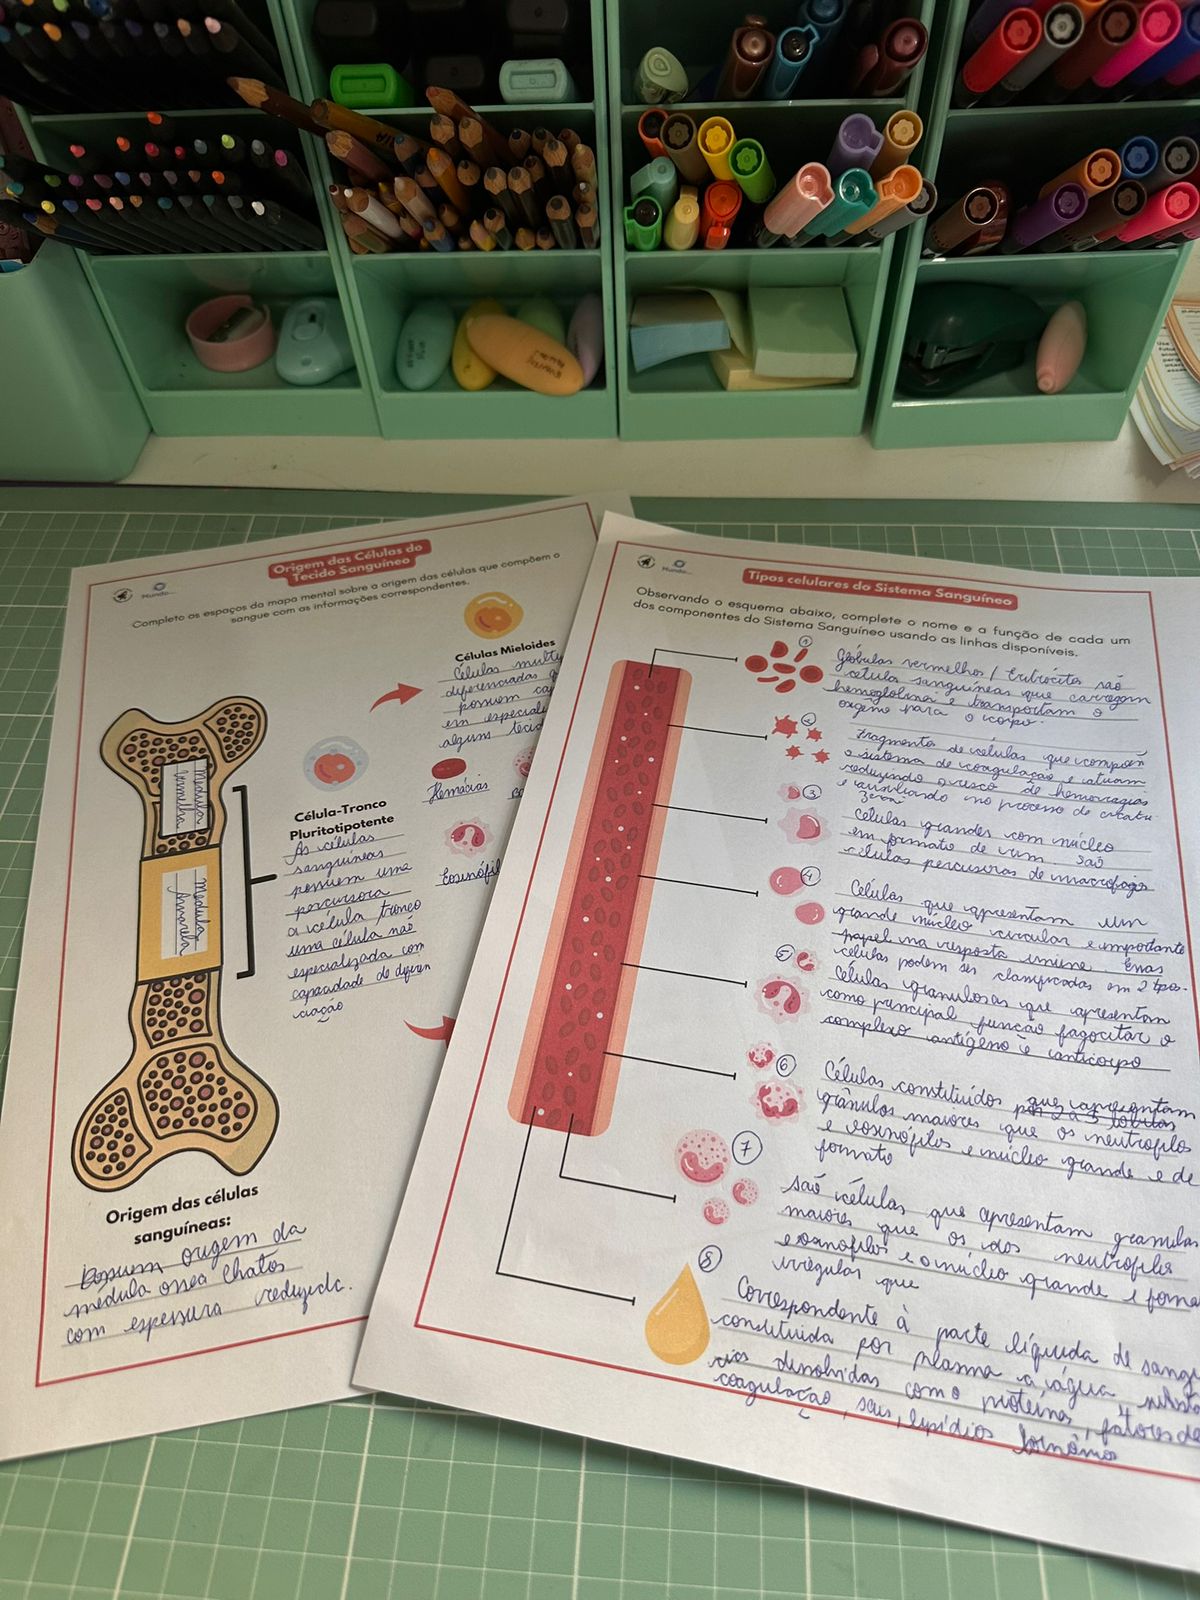 Origem das Células do
Tecido Sanguíneo
Mundo
Complete os espaços da mapa mental sobre a origem das células que compõem o
sangue com as informações correspondentes.
Células Mieloides
Células mult
diferenciadas q
possuem ca
em especial
alguns tecid
Medula
Vermelha
Medula
Amarela
Célula-Tronco
Pluritotipotente
As células
sanguíneas
possuem uma
percursora
a célula tronco
uma célula não
especializada com
capacidade de diferen
ciação
Hemácias
Eosinófil
Origem das células
sanguíneas:
Possuem origem da
medula ossea Chatos
com espessura reduzida.
Tipos celulares do Sistema Sanguíneo
Mundo
Observando o esquema abaixo, complete o nome e a função de cada um
dos componentes do Sistema Sanguíneo usando as linhas disponíveis.
1
Glóbulos vermelhos / Eritrócitos são
célula sanguíneas que carregam
hemoglobina e transportam o
oxigeno para o corpo.
Fragmentos de células que compõem
o sistema de coagulação e atuam
reduzindo o risco de hemorragias
e auxiliando no processo de cicatri
3
Células grandes com núcleo
em formato de rim. São
células percursoras de macrofagos
4
Células que apresentam um
grande núcleo circular e importante
papel na resposta imune. Essas
células podem ser classificadas em 2 tipos.
5
Células granulosas que apresentam
como principal função fagocitar o
complexo antígeno e anticorpo
6
Células constituídos que apresentam
grânulos maiores que os neutrofilos
e eosinófilos e núcleo grande e de
formato
7
São células que apresentam granulos
maiores que os dos neutrofilos
eosinofilos e o núcleo grande e forma
irregular que
8
Correspondente à parte líquida de sangu
constituida por plasma a água
dissolvidas como proteínas, fatores de
coagulação, sais, lipídios hormônios